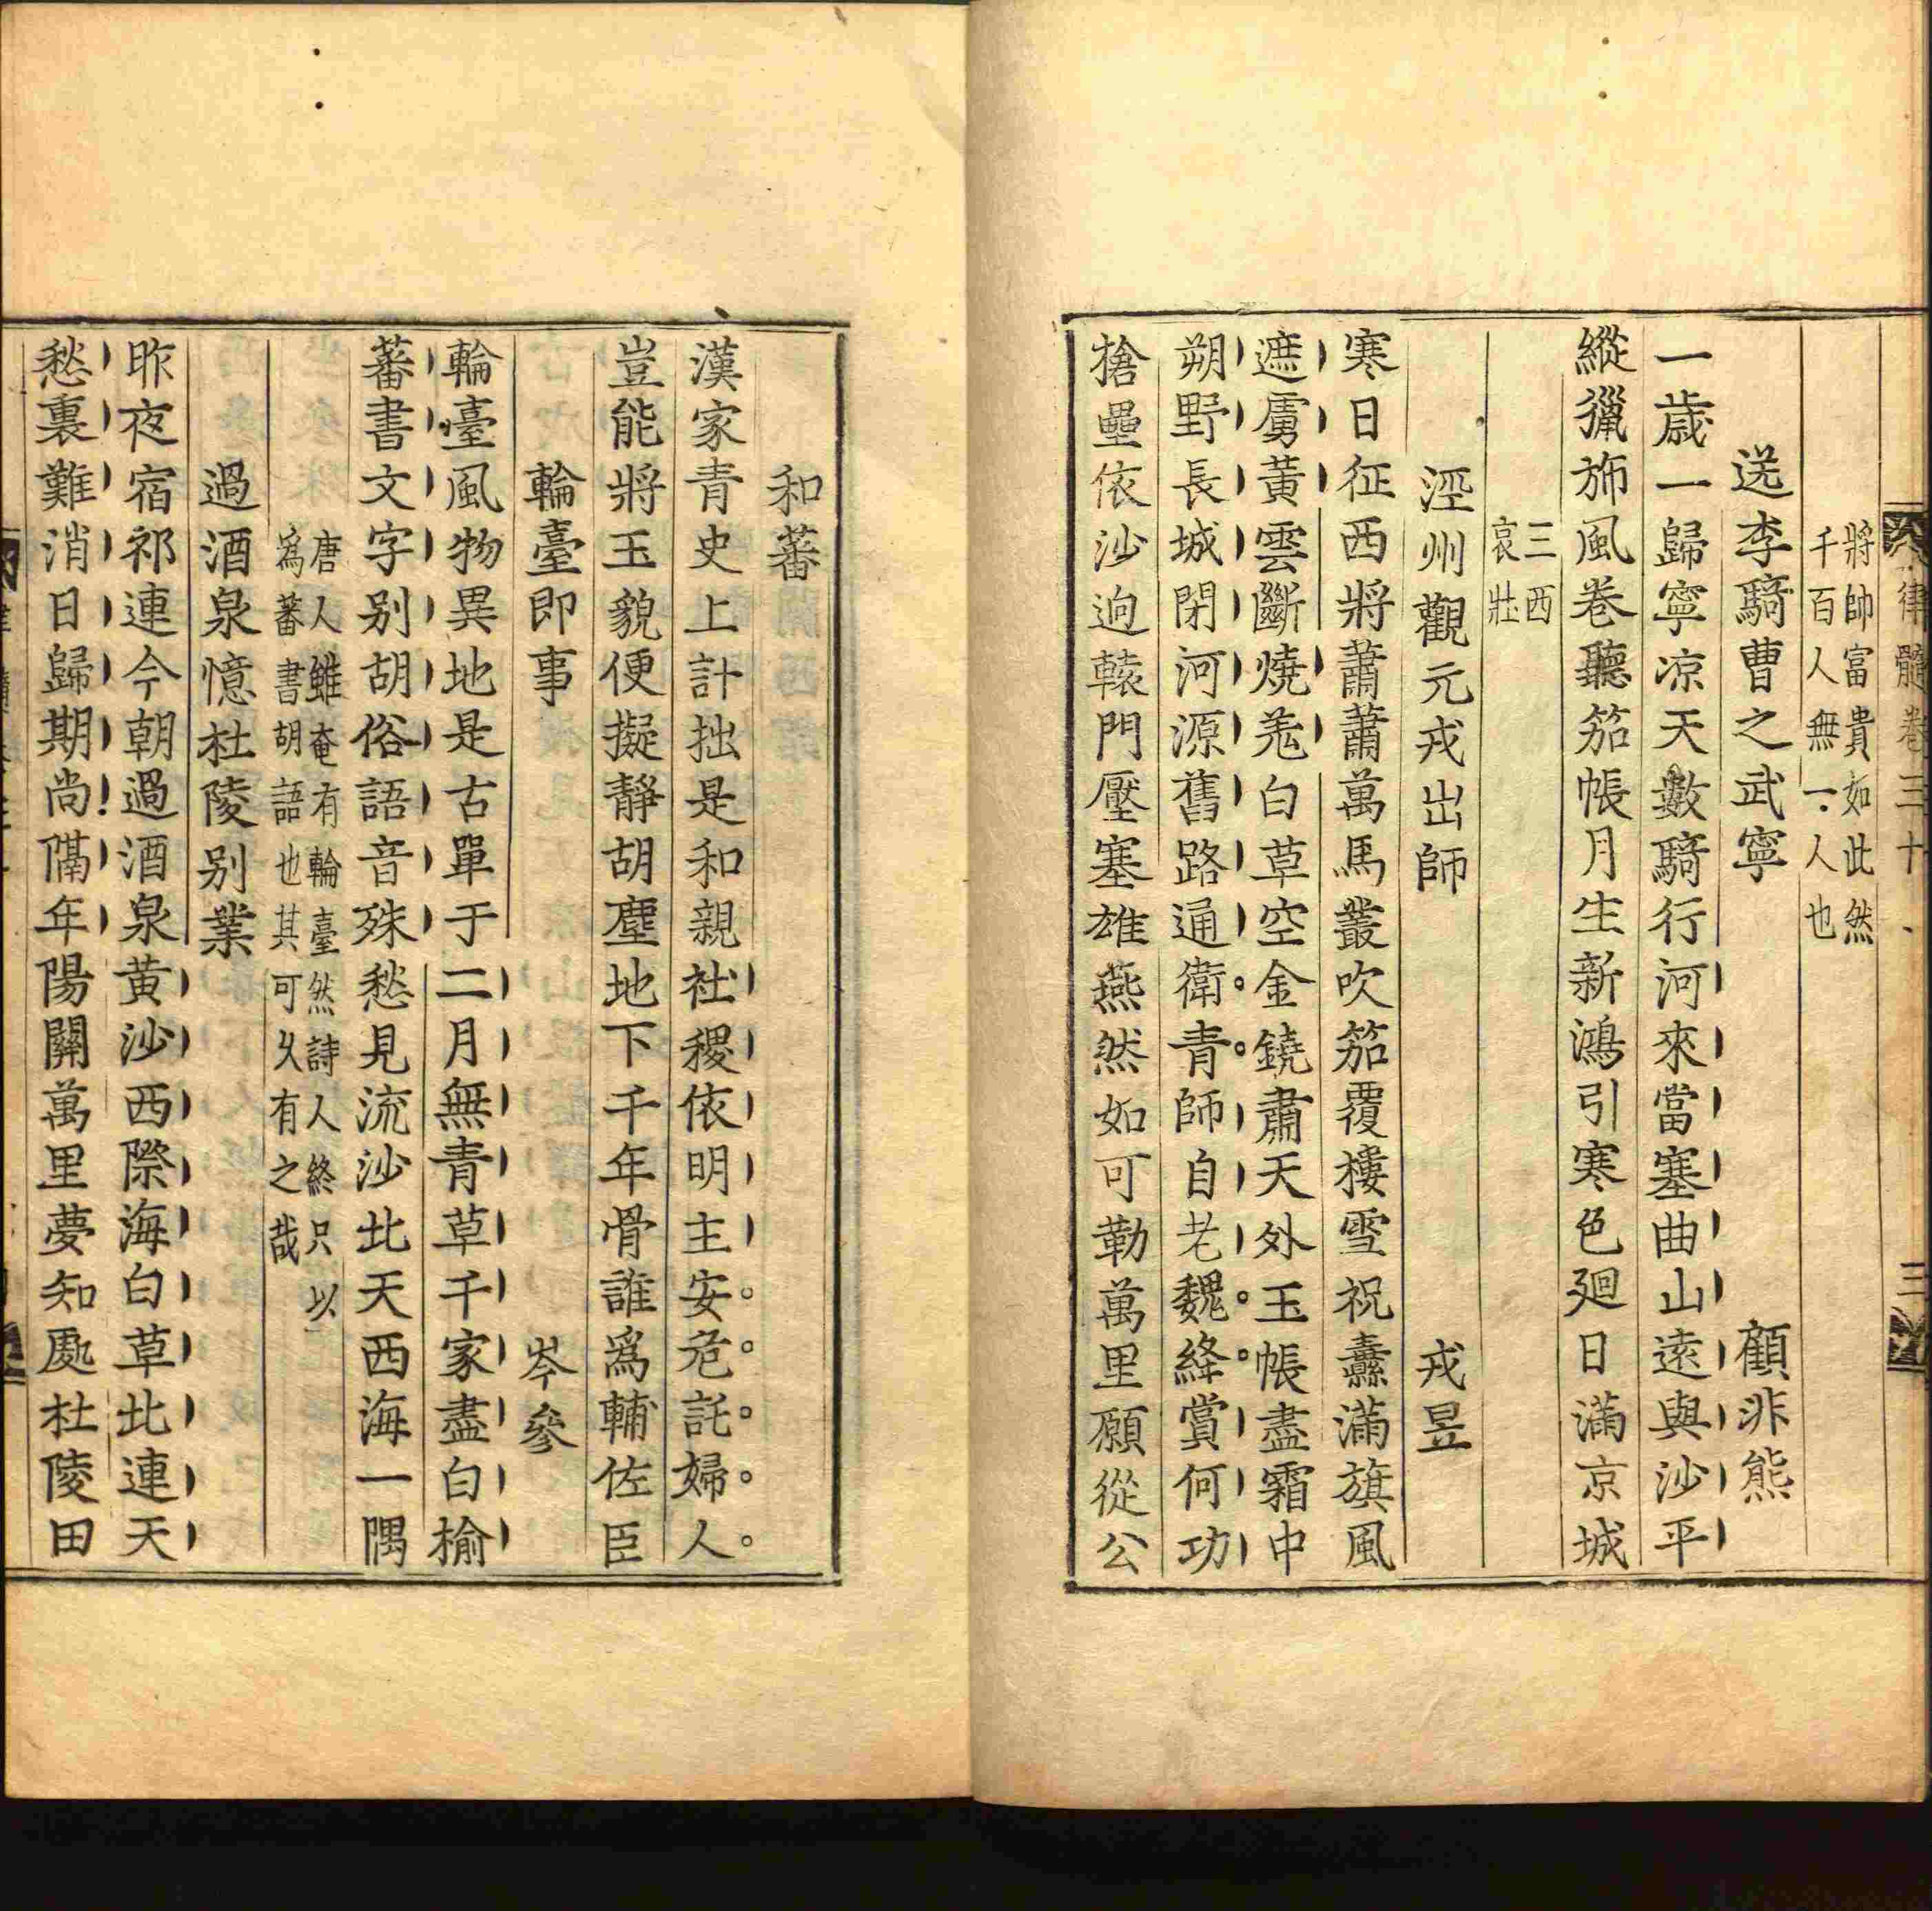 律髓卷三十 三
將帥富貴如此然
千百人無一人也
送李騎曹之武寧 顧非熊
一歲一歸寧凉天數騎行河來當塞曲山遠與沙平
縱獵斾風卷聽笳帳月生新鴻引寒色廻日滿京城
三西
哀壯
涇州觀元戎出師 戎昱
寒日征西將蕭蕭萬馬叢吹笳覆樓雪祝纛滿旗風
遮虜黃雲斷燒羗白草空金鐃肅天外玉帳盡霜中
朔野長城閉河源舊路通衛青師自老魏絳賞何功
槍壘依沙逈轅門壓塞雄燕然如可勒萬里願從公
和蕃
漢家青史上計拙是和親社稷依明主安危託婦人
豈能將玉貌便擬靜胡塵地下千年骨誰爲輔佐臣
輪臺即事 岑參
輪臺風物異地是古單于二月無青草千家盡白榆
蕃書文字别胡俗語音殊愁見流沙北天西海一隅
唐人雖奄有輪臺然詩人終只以
爲蕃書胡語也其可久有之哉
過酒泉憶杜陵别業
昨夜宿祁連今朝過酒泉黃沙西際海白草北連天
愁裏難消日歸期尚隔年陽關萬里夢知處杜陵田